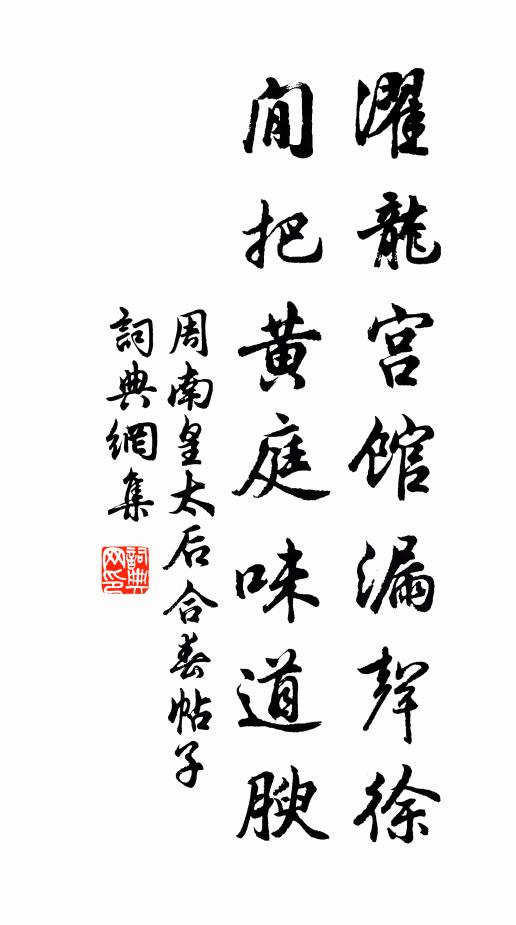 濯龍宮館漏聲徐
閒把黃庭味道腴
周南皇太后合春帖子
詞典網集
詞典網印